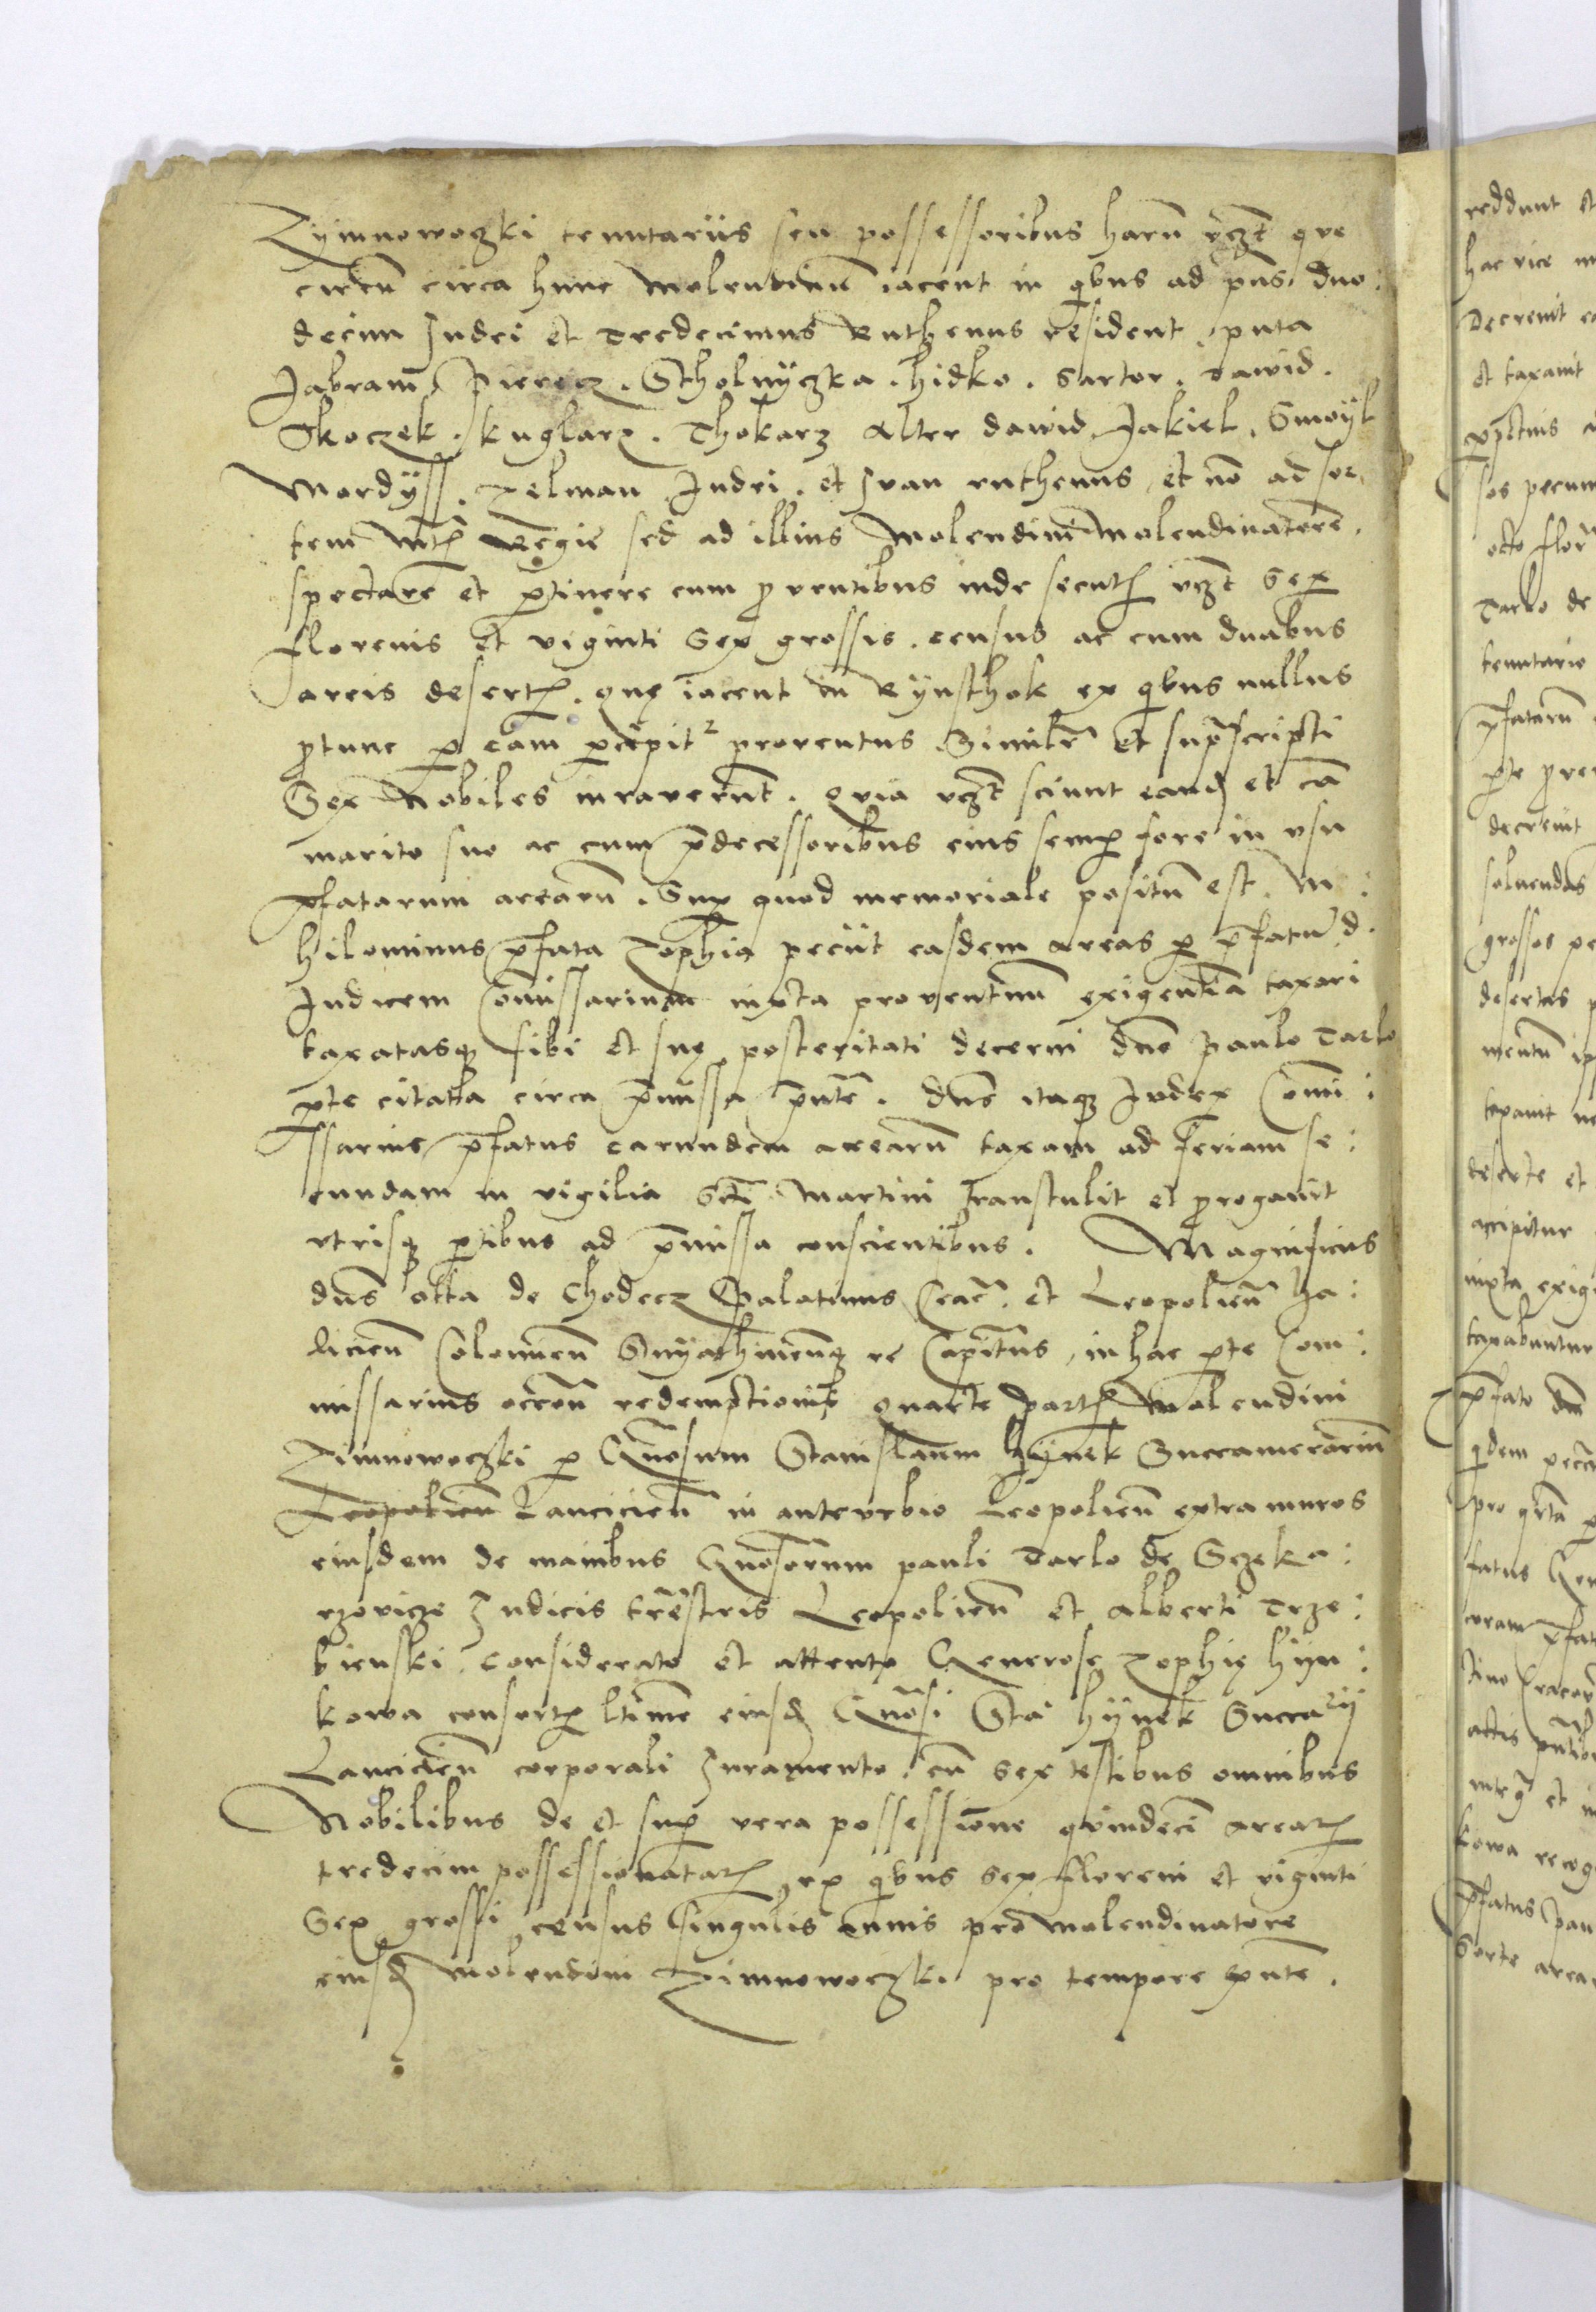 Zymnowoczki tenutariis seu possessoribus harũ vczt̃ que
circũ circa hunc molendinũ iacent in q̃bus ad pñs. duo:
decim Judei et Tredecimus Ruthenus resident, puta
Jabram, Pierecz. Scholnyczka. hidko. Sartor. Dawid.
Skoczek. Kuglarz. Thokarz Alter dawid, Jakiel. Smoyl
Mordyss. Zelman Judei. et Iwan ruthenus, et nõ ad sor
tem Mtis Regie sed ad illius molendini molendinatorẽ.
spectare et ptinere cum puentibus inde secutis vczt̃ sex
florenis et viginti sex grossis. census ac cum duabus
areis desertis. que iacent in Rynsthok ex q̃bus nullus
ptunc p eam pcipitr proventus. Similr̃ et sup̃scripti
Sex Nobiles iuraverũt. Quia vczt̃ sciunt eand et cũ
marito suo ac cum p̃decessoribus eius semp fore in vsu
p̃fatarum arearũ. Sup quod memoriale positũ est. Ni:
hilominus p̃fata Zophia peciit easdem areas p p̃fatũ d.
Iudicem Cõmissarium iuxta proventuum exigentiã taxari
taxatasq sibi et sue posteritati decerni dño Paulo Tarlo
pte citata circa p̃missa p̃nte. Dñs itaq Iudex Comi:
ssarius p̃fatus earundem arearũ taxam ad feriam se:
cundam in vigilia Scti Martini transtulit et progavit
vtrisq ptibus ad p̃missa conscientibus. Magnificus
dñs otta de Chodecz Palatinus Crac̃. et Leopolieñ Ha:
licieñ Colomieñ Snyathinieñq re Capitãus, in hac pte Com:
missarius occõe redemptionis quarte partis molendini
Zimnowoczki p Gñosum Stanislaum hynek Succamerariũ
Leopolieñ Lancicieñ in anteurbio Leopolieñ extra muros
eiusdem de manibus Gñosorum pauli Tarlo de Sczeka:
rzovicze Iudicis trrestris Leopolieñ et Alberti Trze:
bienski. considerato et attento Generose Zophie hyn:
kowa consortis ltime eiusd Gñosi Sta hynek Succary
Lancicieñ corporali Iuramento, cũ sex testibus omnibus
Nobilibus de et sup vera possessione quindeci arearz
tredecim possessionatarz, ex q̃bus sex floreni et viginti
Sex grossi, census singulis annis pro molendinatore
eiusd molendini Zimnowoczki pro tempore exñte.
reddunt et
hac vice
Decrevit
et taxavit
sos pecun
octo flor
Tarlo de
tenutario
p̃fatarũ
decrevit
solvendas
grossos
desertas
mentũ
taxavit
deserte et
accipitur
iuxta exig
taxabuntur
p̃fato dño
q̃dem
pro
fatus Gen
coram p̃fat
tino Cracov
actis
integ̃ et
kowa recog
p̃fatus Pau
Sorte area